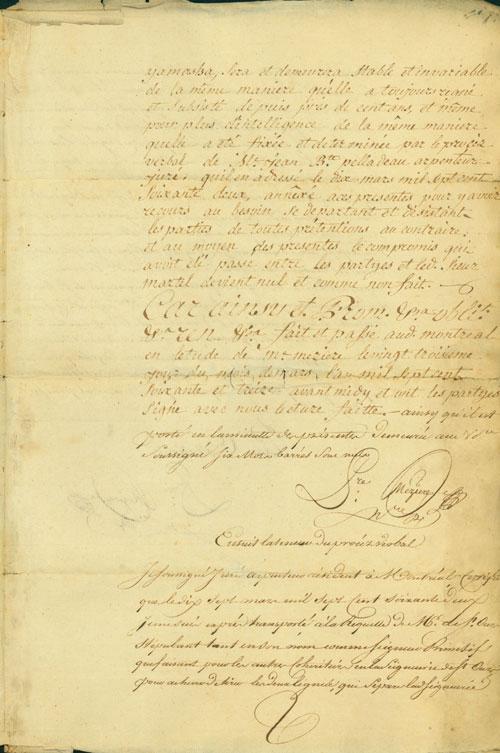 yamaska, sera et demeurera stable et invariable
de la même maniere qu'elle a toujours
et subsisté depuis près de cent ans, et même
pour plus d'intelligence de la même maniere
quelle a été fixée et determinée par le procès
verbal de Sr. Jean Bte. pelladeau arpenteur
juré. quil en adressé le dix mars mil sept cent
soixante deux, annéxé aes presentes pour y avoir
recours au besoin se departant et desistant
les parties de toutes prétentions au contraire.
et au moyen des presentes le compromis qui
avoit été passé entre les partyes et led. Sieur
martel devient nul et comme non fait. —
Car ainsi et. Prom. &ca. oblit.
&ca. REN. &ca. fait et passé aud. montreal
en letude de Me. meziere le vingt troisieme
jour du mois de mars, l'an mil sept cent
soixante et treize avant midy et ont les partyes
signé avec nous lecture faitte — ainsy qu'il est
porté en la minutte des présentes demeurée au
soussigné six mots barrés sont nuls
Mézière
Ensuit la teneur du procéz verbal
Je soussigné Juré arpenteur résident à Montréal Certifie
que le dix sept mars mil sept Cent soixante deux
je me suis exprès transporté à la Requette de Mr. de St. Ours
Stipulant tant en son nom comme seigneur Primitif
que faisant pour les autre Cohéritiers en la seigneurie de St. Ours
pour de tirer les deux lignes, qui separe lad. seigneurie